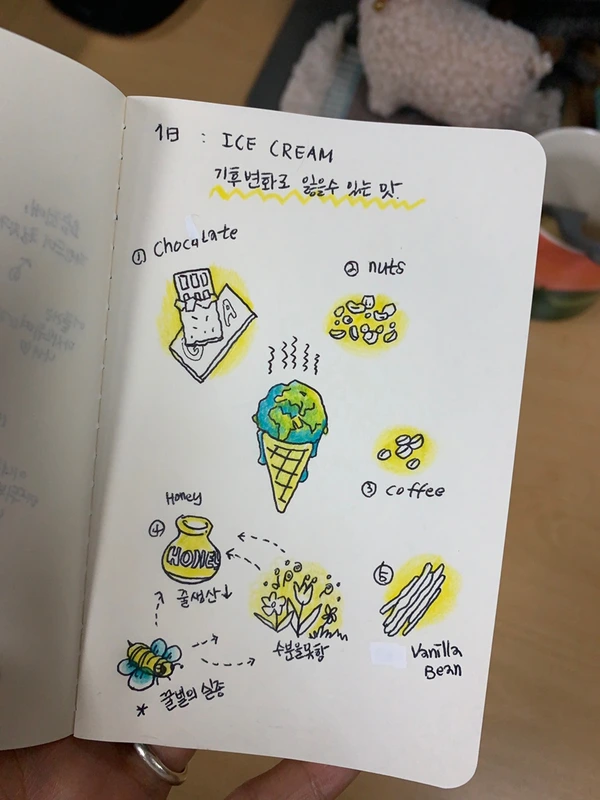 1日 : ICE CREAM
기후변화로 잃을수 있는 맛.
① Chocolate
② nuts
③ coffee
Honey
④
HONEY
꿀생산↓
수분을못함
* 꿀벌의 실종
⑤
Vanilla
Bean